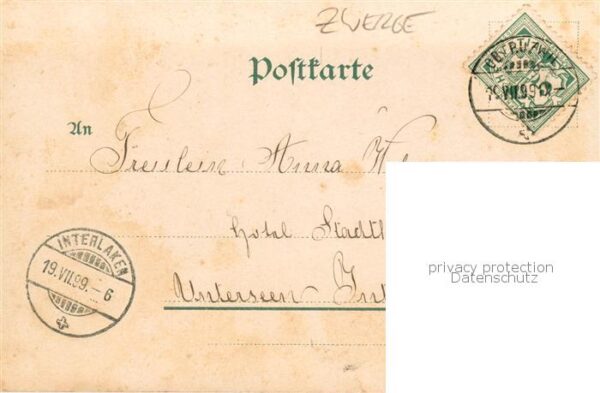 ZWERGE
Postkarte
An
Fräulein Anna
Hotel Stadth
Unterseen Int
INTERLAKEN
19.VII.99.
6
privacy protection
Datenschutz